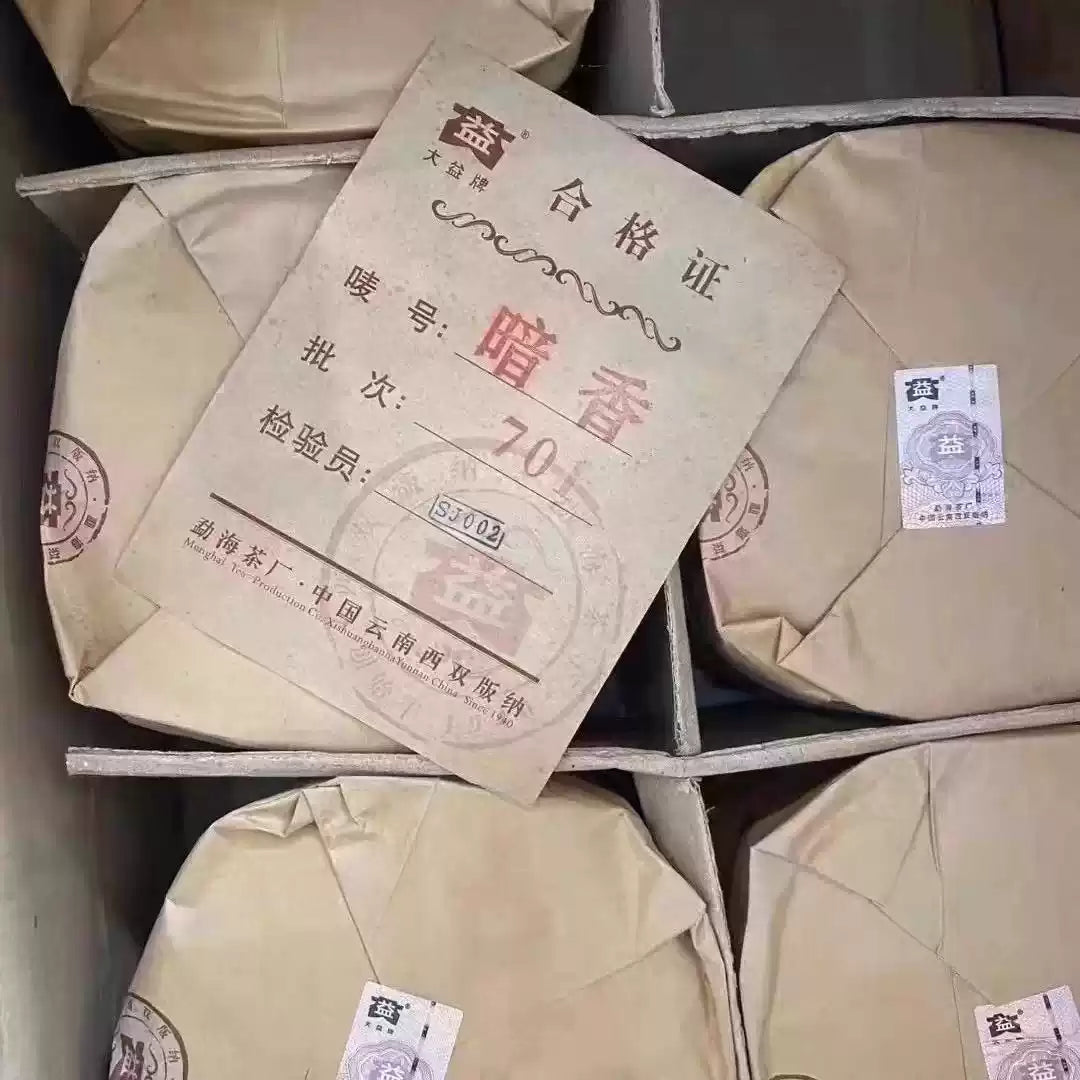 益®
大益牌
合格证
唛号：暗香
批次：701
检验员：SJ002
勐海茶厂·中国云南西双版纳
Menghai Tea Production Co. Xishuangbanna Yunnan China Since 1940
益
益®
大益牌
益
勐海茶厂
中国云南西双版纳
益®
大益牌
益
益®
大益牌
益